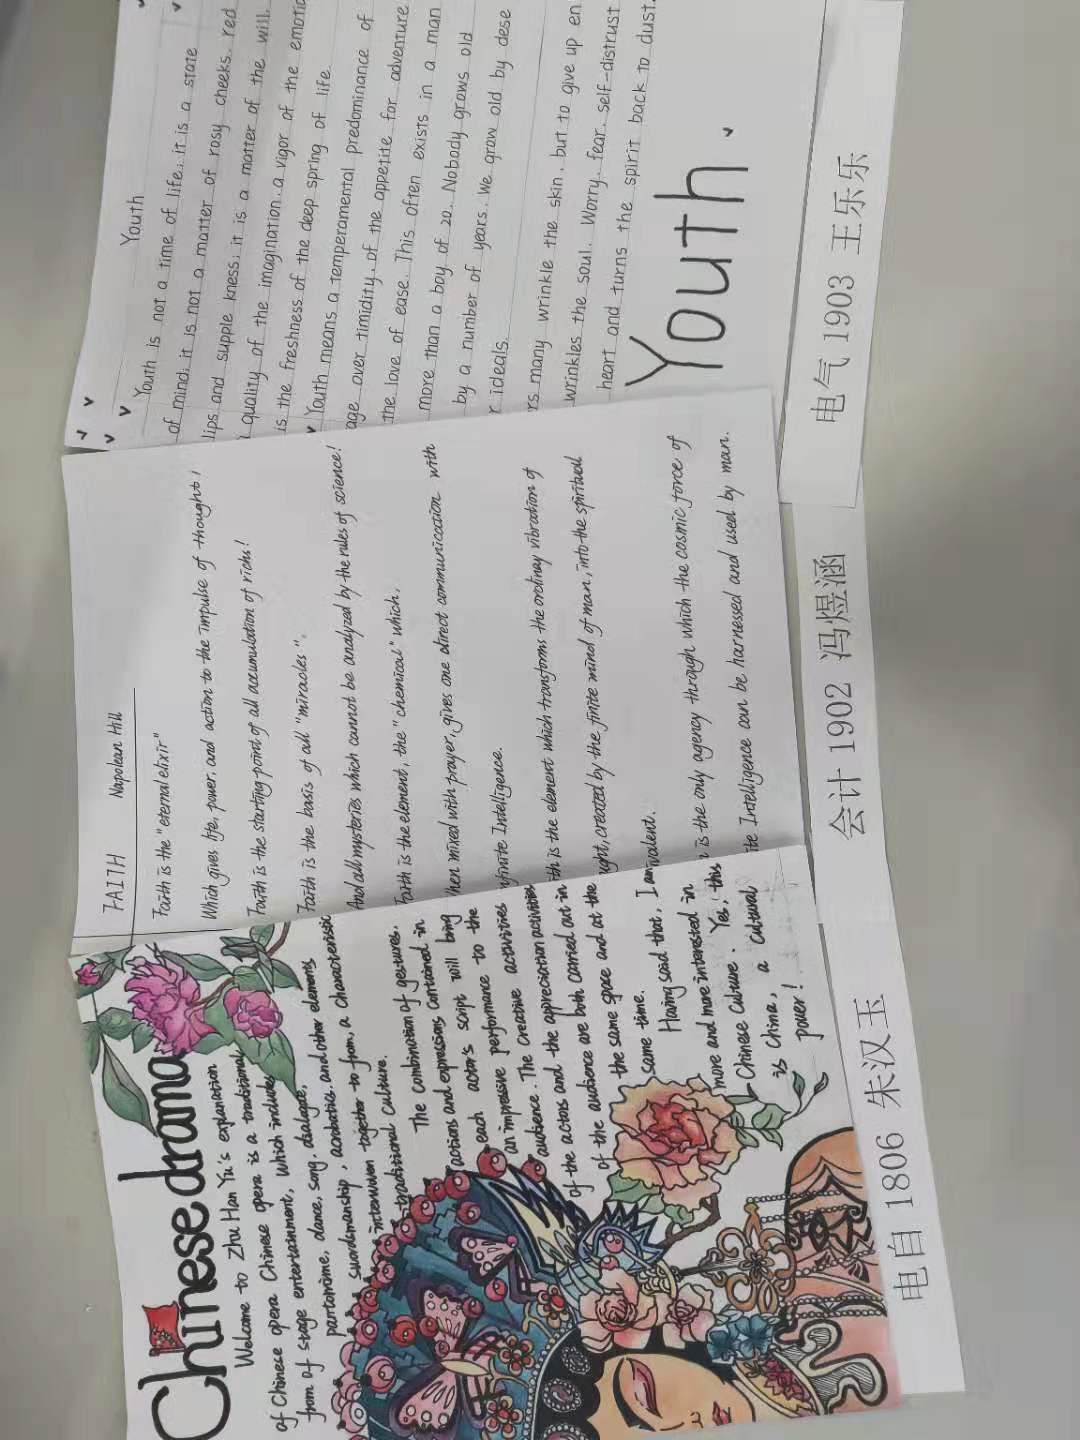 Chinese drama
Welcome to Zhu Han Yu's explanation
of Chinese opera Chinese opera is a traditional
from of stage entertainment, which includes
pantomime, dance, song, dialogue,
swordsmanship, acrobatics, and other elements
interwoven together to from, a characteristic
traditional culture.
The Combination of gestures,
actions and expressions contained in
each actor's script will bring
an impressive performance to the
audience. The creative activities
of the actors and the appreciation activities
of the audience are both carried out in
the same space and at the
same time.
Having said that, I am
more and more interested in
Chinese Culture. Yes, this
is China, a cultural
power!
电自 1806 朱汉玉
FAITH Napolean Hill
Faith is the "eternal elixir"
Which gives life, power, and action to the impulse of thought!
Faith is the starting point of all accumulation of richs!
Faith is the basis of all "miracles".
And all mysteries which cannot be analyzed by the rules of science!
Faith is the element, the "chemical" which,
hen mixed with prayer, gives one direct communication with
nfinite Intelligence.
th is the element which transforms the ordinay vibration of
ught, created by the finite mind of man, into the spiritual
ivalent.
is the only agency through which the cosmic force of
ite Intelligence can be harnessed and used by man.
会计 1902 冯煜涵
Youth
Youth is not a time of life; it is a state
of mind; it is not a matter of rosy cheeks, red
lips and supple kness; it is a matter of the will,
quality of the imagination, a vigor of the emotio
is the freshness of the deep spring of life.
Youth means a temperamental predominance of
age over timidity, of the appetite for adventure
the love of ease. This often exists in a man
more than a boy of 20. Nobody grows old
by a number of years. We grow old by dese
r ideals.
rs many wrinkle the skin, but to give up en
wrinkles the soul. Worry, fear, self-distrust
heart and turns the spirit back to dust.
Youth.
电气 1903 王乐乐